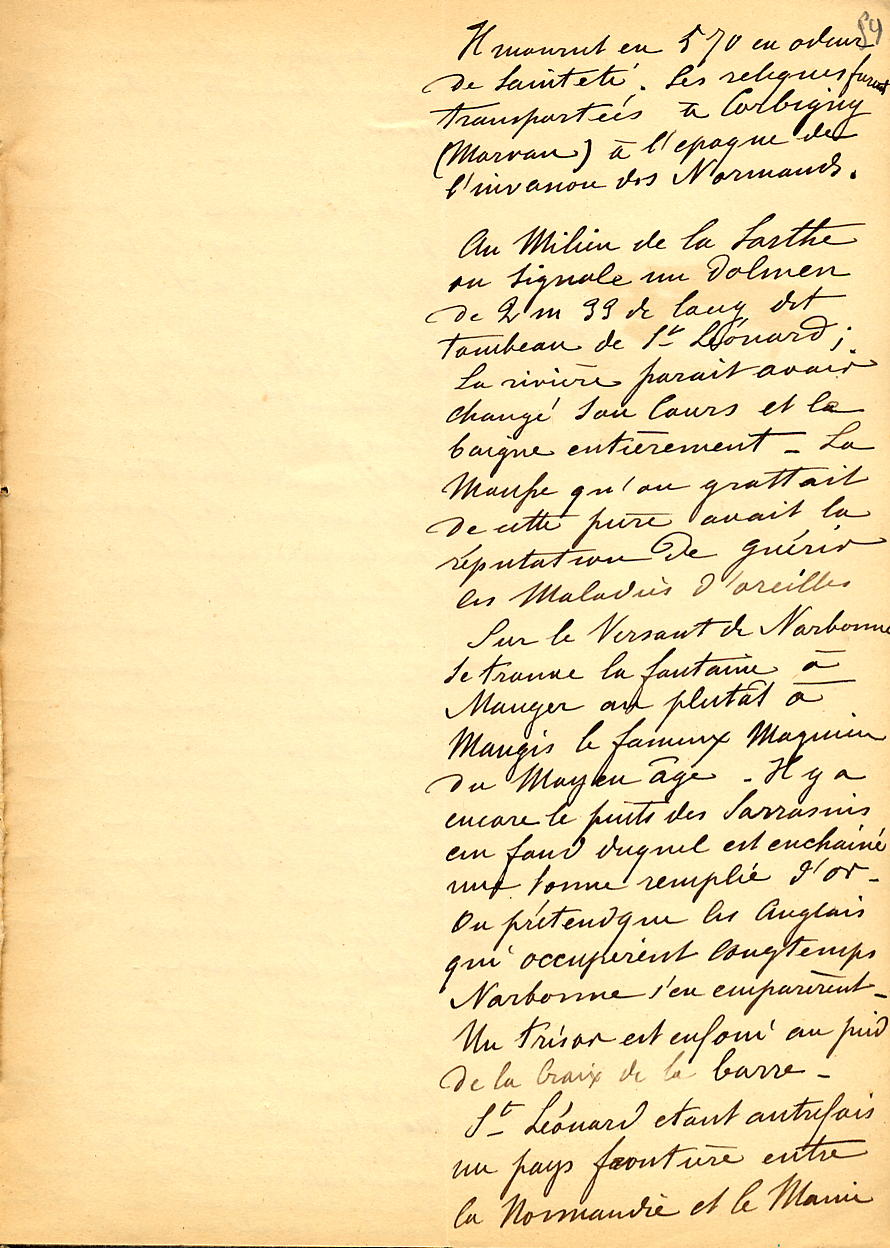 54
Il mourut en 570 en odeur
de Sainteté. Ses reliques furent
transportées à Corbigny
(Morvan) à l'epoque de
l'invasion des Normands.
Au Milieu de la Sarthe
on signale un Dolmen
de 2 m 33 de long dit
tombeau de St Léonard ;
La rivière parait avoir
changé son Cours et la
baigne entièrement - La
Mousse qu'on grattait
de cette pierre avait la
réputation de guérir
les Maladies d'oreilles
Sur le Versant de Narbonne
se trouve la fontaine à
Manger ou plutôt à
Maugis le fameux Magicien
du Moyen âge - Il y a
encore le puits des Sarrasins
au fond duquel est enchainé
une tonne remplie d'or -
On prétend que les Anglais
qui occupèrent longtemps
Narbonne s'en emparèrent -
Un trésor est enfoui au pied
de la Croix de la barre -
St Léonard etant autrefois
un pays frontière entre
la Normandie et le Maine